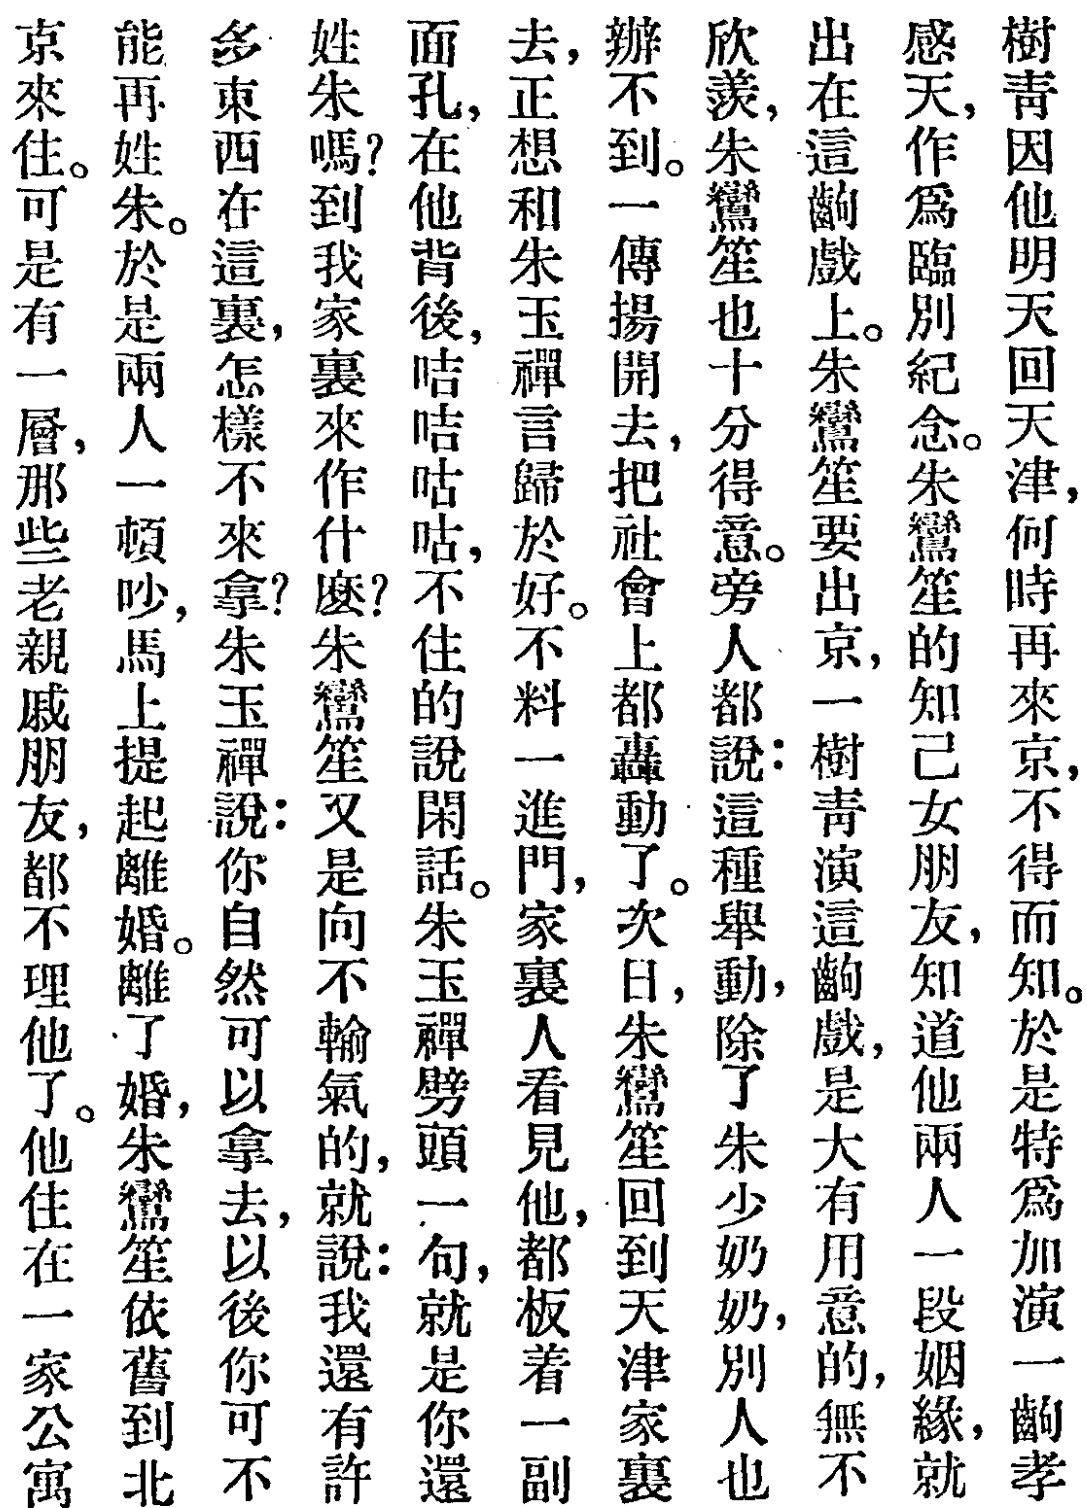 樹靑因他明天回天津，何時再來京，不得而知。於是特爲加演一齣孝
感天，作爲臨別紀念。朱鸞笙的知己女朋友，知道他兩人一段姻緣，就
出在這齣戲上。朱鸞笙要出京，一樹靑演這齣戲，是大有用意的，無不
欣羨，朱鸞笙也十分得意。旁人都說：這種舉動，除了朱少奶奶，別人也
辦不到。一傳揚開去，把社會上都轟動了。次日，朱鸞笙回到天津家裏
去，正想和朱玉禪言歸於好。不料一進門，家裏人看見他，都板着一副
面孔，在他背後，咭咭咕咕，不住的說閑話。朱玉禪劈頭一句，就是你還
姓朱嗎？到我家裏來作什麽？朱鸞笙又是向不輸氣的，就說：我還有許
多東西在這裏，怎樣不來拿？朱玉禪說：你自然可以拿去，以後你可不
能再姓朱。於是兩人一頓吵，馬上提起離婚。離了婚，朱鸞笙依舊到北
京來住。可是有一層，那些老親戚朋友，都不理他了。他住在一家公寓